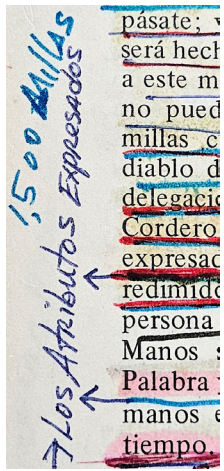 ¡500 Millas
→ Los Atributos Expresados
pásate;
será hech
a este m
no pued
millas c
diablo d
delegacio
Cordero
expresad
redimido
persona
Manos s
Palabra
manos e
tiempo